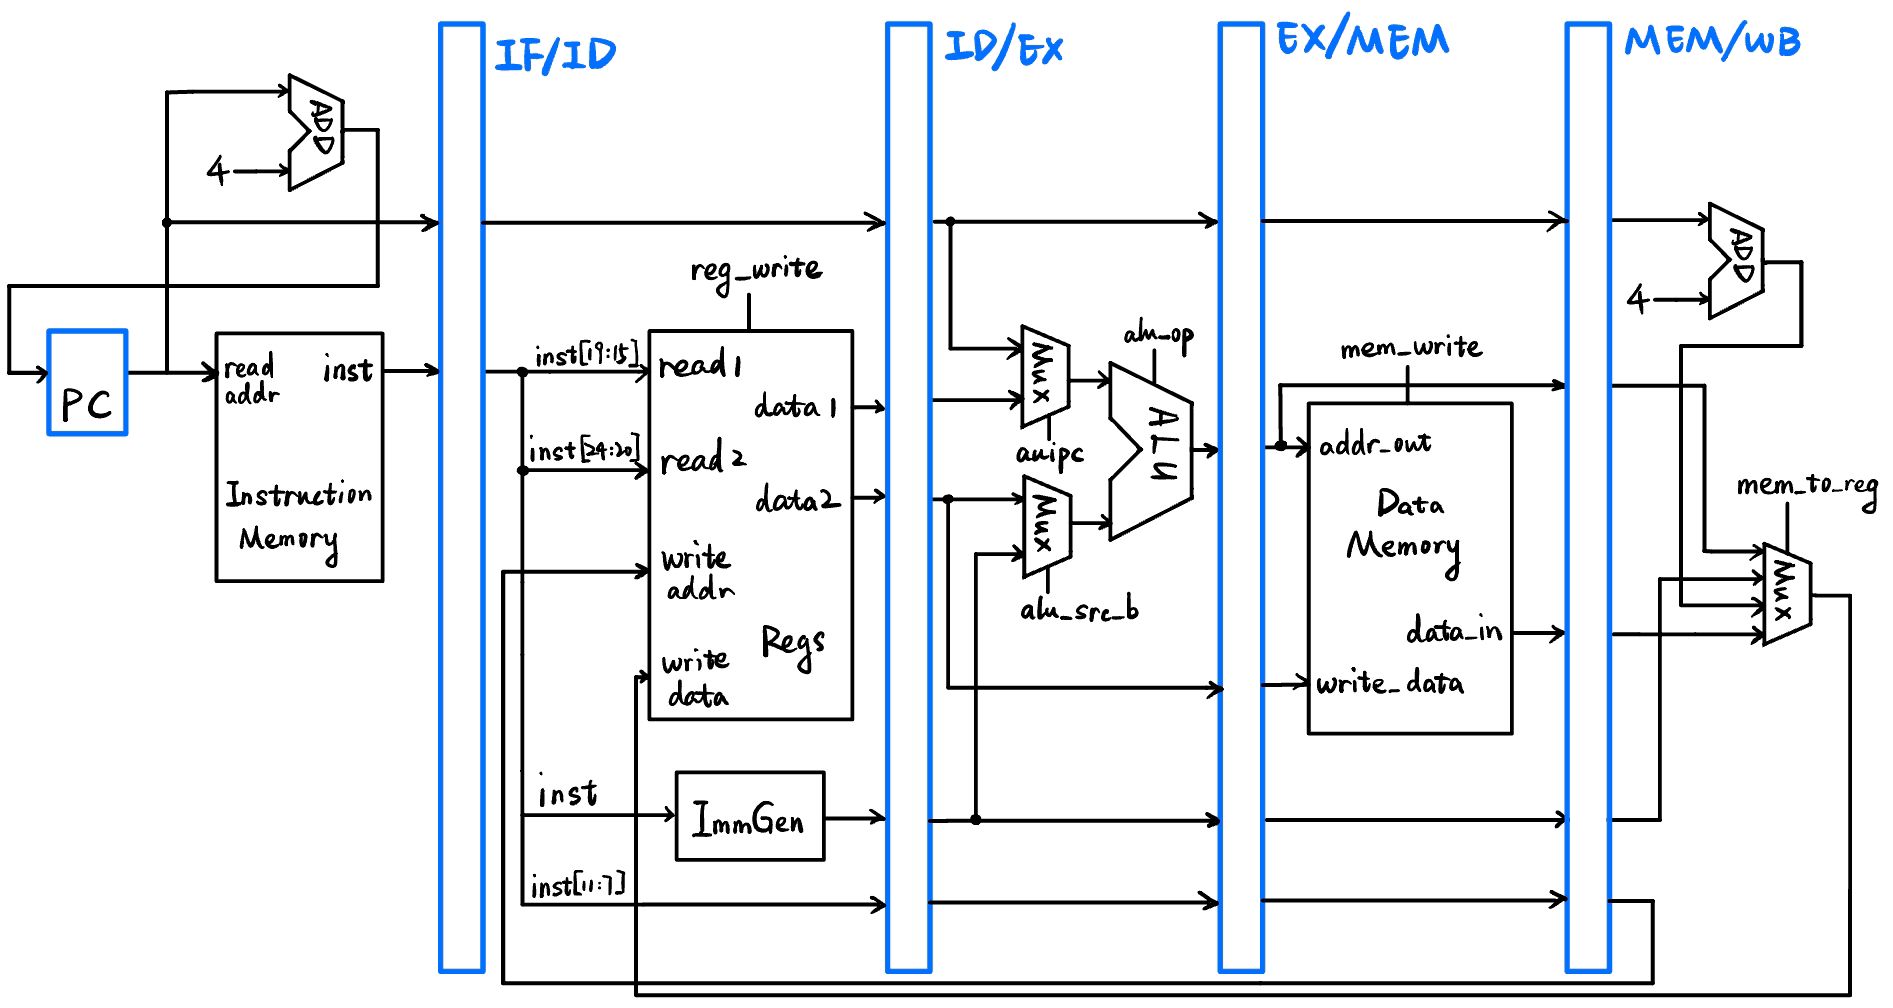 IF/ID
ID/EX
EX/MEM
MEM/WB
ADD
4
PC
read
addr
inst
Instruction
Memory
reg_write
inst[19:15]
read1
data1
inst[24:20]
read2
data2
write
addr
Regs
write
data
inst
ImmGen
inst[11:7]
Mux
auipc
Mux
alu_src_b
alu_op
ALU
mem_write
addr_out
Data
Memory
data_in
write_data
ADD
4
mem_to_reg
Mux